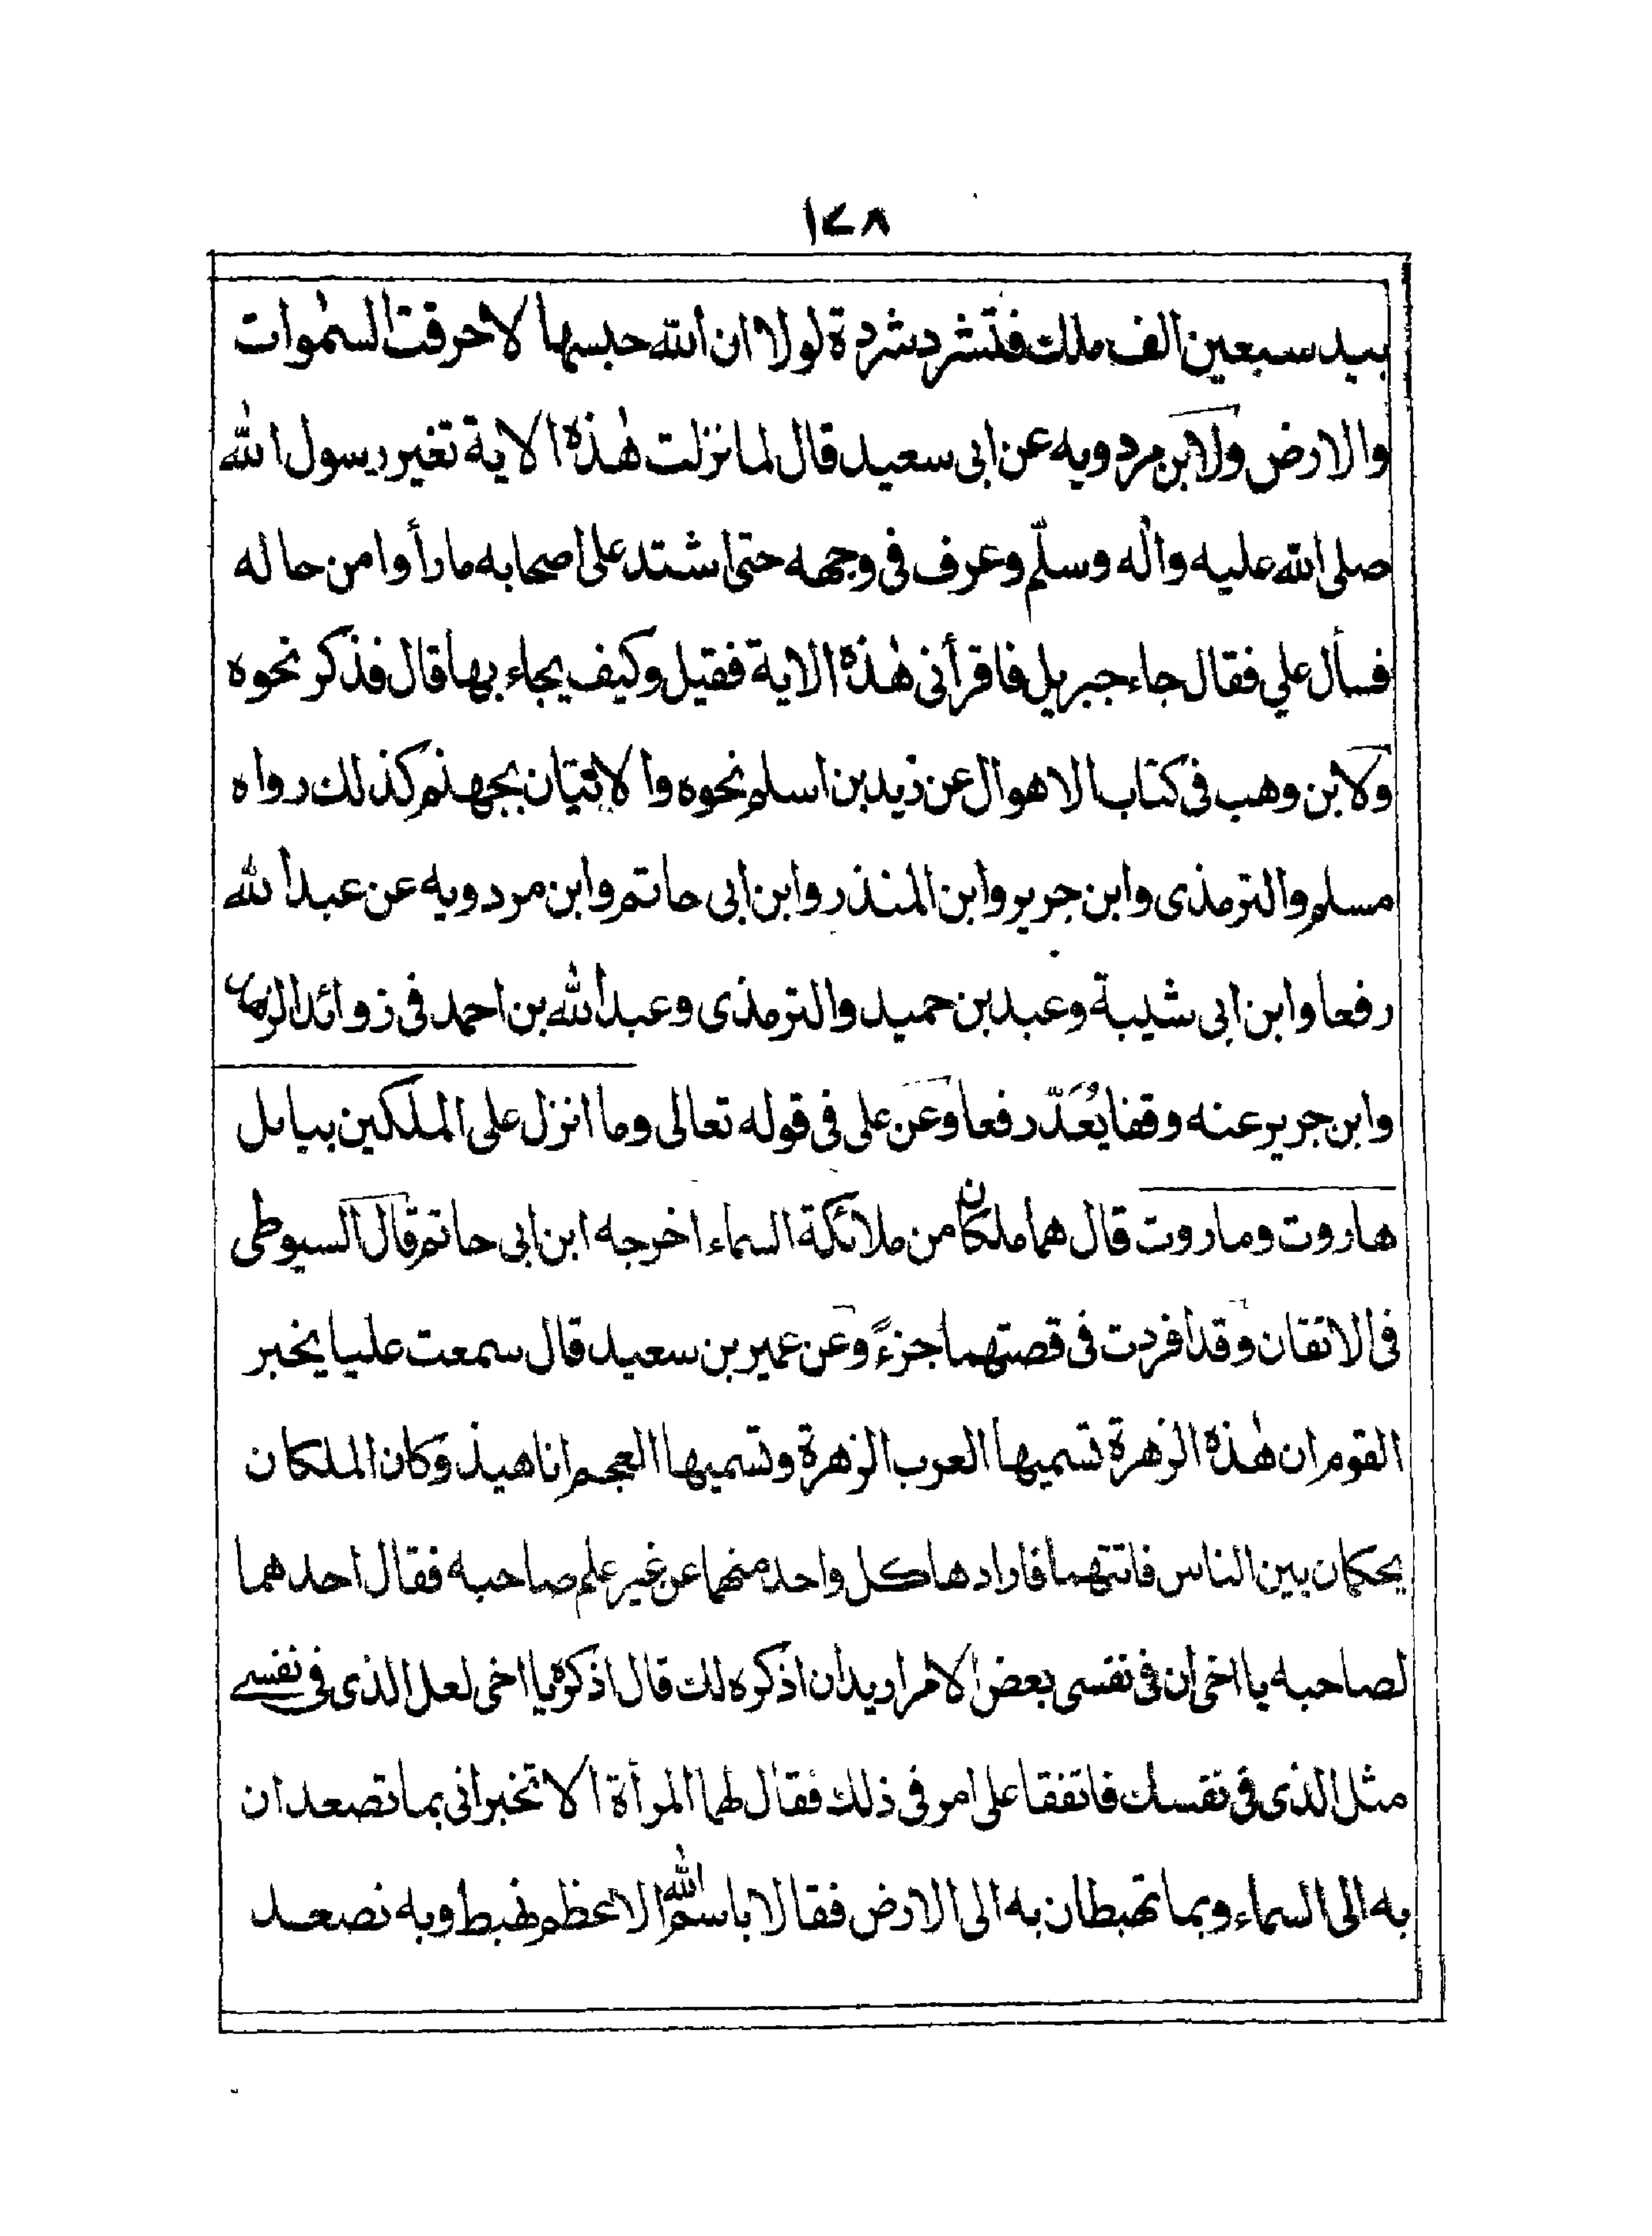 ١٤٨
بيد سبعين الف ملك فتشرد شردة لولا ان الله حبسها لاحرقت السمٰوات
والارض ولابن مردويه عن ابى سعيد قال لما نزلت هٰذه الاية تغير رسول الله
صلى الله عليه واٰله وسلّم وعرف فى وجهه حتى اشتد على اصحابه ما رأوا من حاله
فسأل علي فقال جاء جبريل فاقرأنى هٰذه الاية فقيل وكيف يجاء بها قال فذكر نحوه
ولابن وهب فى كتاب الاهوال عن زيد بن اسلم نحوه والاتيان بجهنم كذلك رواه
مسلم والترمذى وابن جرير وابن المنذر وابن ابى حاتم وابن مردويه عن عبد الله
رفعا وابن ابى شيبة وعبد بن حميد والترمذى وعبد الله بن احمد فى زوائد الزهد
وابن جرير عنه وقفا يُعَدّ رفعا وعن على فى قوله تعالى وما انزل على الملكين ببابل
هاروت وماروت قال هما ملكان من ملائكة السماء اخرجه ابن ابى حاتم قال السيوطى
فى الاتقان وقد افردت فى قصتهما جزءً وعن عمير بن سعيد قال سمعت عليا يخبر
القوم ان هٰذه الزهرة تسميها العرب الزهرة وتسميها العجم اناهيذ وكان الملكان
يحكمان بين الناس فاتتهما فارادها كل واحد منهما عن غير علم صاحبه فقال احدهما
لصاحبه يا اخى ان فى نفسى بعض الامر اريد ان اذكره لك قال اذكره يا اخى لعل الذى فى نفسى
مثل الذى فى نفسك فاتفقا على امر فى ذلك فقال لهما المرأة الا تخبرانى بما تصعدان
به الى السماء وبما تهبطان به الى الارض فقالا باسم الله الاعظم نهبط وبه نصعد